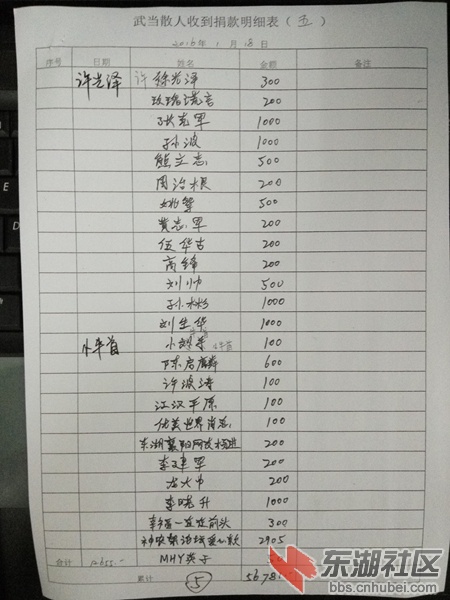 武当散人收到捐款明细表（五）
2016年1月18日
序号 日期 姓名 金额 备注
许光泽 许 徐光泽 300
玫瑰谎言 200
张克军 1000
孙波 1000
熊立志 500
周治根 200
姚馨 500
黄志军 200
伍华古 200
高锋 200
刘帅 500
孙彬 1000
刘生华 1000
100
600
许波涛 100
江汉平原 100
优美世界肖志 100
东湖襄阳网友 200
李建军 200
龙大中 200
李晓升 1000
300
神农架论坛爱心款 2905
合计 12655.- MHY英子
累计 ⑤ 5678
东湖社区
bbs.cnhubei.com